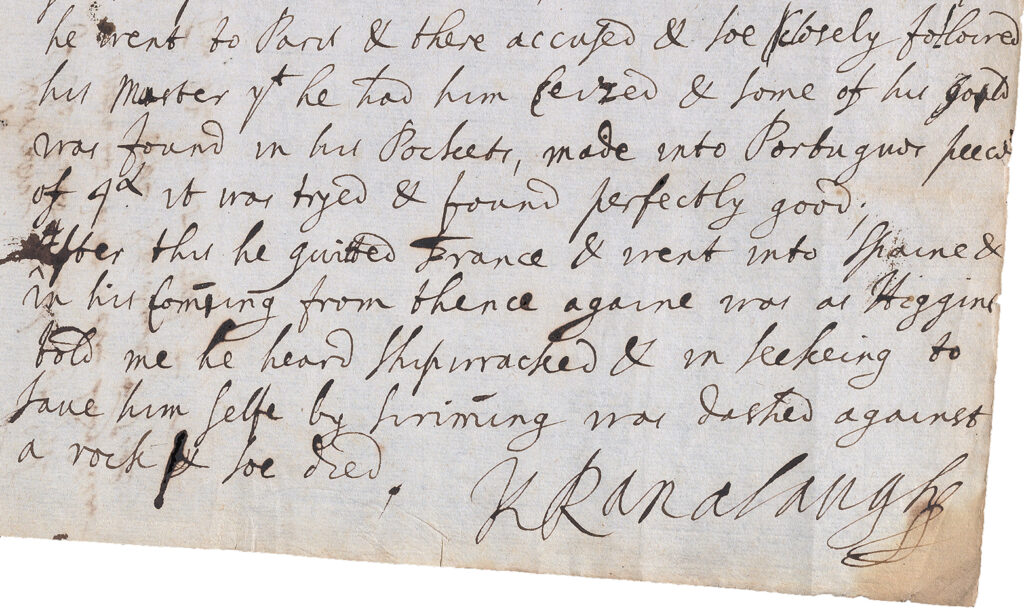 he went to Paris & there accused & soe closely followed
his Master yt he had him Ceized & some of his gould
was found in his Pockets, made into Portugues peeces
of 4d it was tryed & found perfectly good,
After this he quitted France & went into Spaine &
in his Com̄ing from thence againe was as Higgins
told me he heard shipwracked & in seekeing to
save him selfe by swim̄ing was dashed against
a rock & soe died.
K Ranalaugh